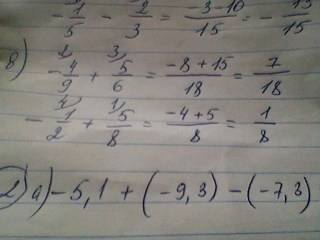 -1/5 - 2/3 = -3-10/15 = -13/15
в) -4/9 + 5/6 = -8+15/18 = 7/18
-1/2 + 5/8 = -4+5/8 = 1/8
2) а) -5,1 + (-9,3) - (-7,3)